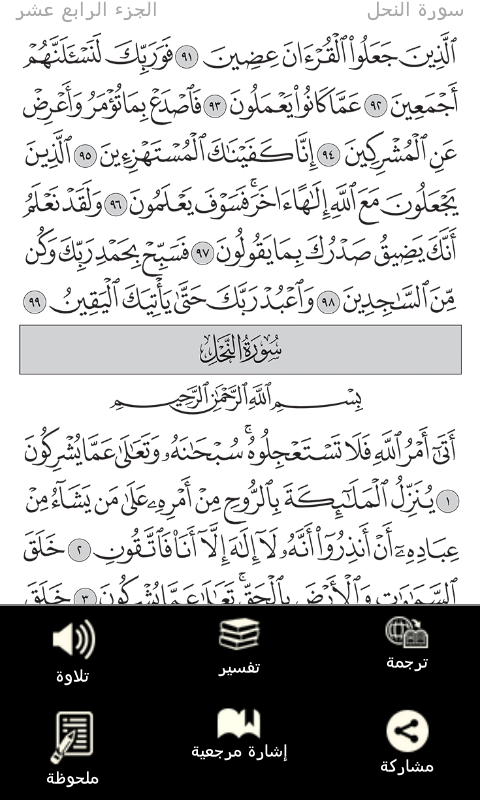 سورة النحل
الجزء الرابع عشر
ٱلَّذِينَ جَعَلُوا۟ ٱلْقُرْءَانَ عِضِينَ ٩١ فَوَرَبِّكَ لَنَسْـَٔلَنَّهُمْ
أَجْمَعِينَ ٩٢ عَمَّا كَانُوا۟ يَعْمَلُونَ ٩٣ فَٱصْدَعْ بِمَا تُؤْمَرُ وَأَعْرِضْ
عَنِ ٱلْمُشْرِكِينَ ٩٤ إِنَّا كَفَيْنَـٰكَ ٱلْمُسْتَهْزِءِينَ ٩٥ ٱلَّذِينَ
يَجْعَلُونَ مَعَ ٱللَّهِ إِلَـٰهًا ءَاخَرَ ۚ فَسَوْفَ يَعْلَمُونَ ٩٦ وَلَقَدْ نَعْلَمُ
أَنَّكَ يَضِيقُ صَدْرُكَ بِمَا يَقُولُونَ ٩٧ فَسَبِّحْ بِحَمْدِ رَبِّكَ وَكُن
مِّنَ ٱلسَّـٰجِدِينَ ٩٨ وَٱعْبُدْ رَبَّكَ حَتَّىٰ يَأْتِيَكَ ٱلْيَقِينُ ٩٩
سُورَةُ النَّحْلِ
بِسْمِ ٱللَّهِ ٱلرَّحْمَـٰنِ ٱلرَّحِيمِ
أَتَىٰٓ أَمْرُ ٱللَّهِ فَلَا تَسْتَعْجِلُوهُ ۚ سُبْحَـٰنَهُۥ وَتَعَـٰلَىٰ عَمَّا يُشْرِكُونَ
١ يُنَزِّلُ ٱلْمَلَـٰٓئِكَةَ بِٱلرُّوحِ مِنْ أَمْرِهِۦ عَلَىٰ مَن يَشَآءُ مِنْ
عِبَادِهِۦٓ أَنْ أَنذِرُوٓا۟ أَنَّهُۥ لَآ إِلَـٰهَ إِلَّآ أَنَا۠ فَٱتَّقُونِ ٢ خَلَقَ
ٱلسَّمَـٰوَٰتِ وَٱلْأَرْضَ بِٱلْحَقِّ ۚ تَعَـٰلَىٰ عَمَّا يُشْرِكُونَ ٣ خَلَقَ
ترجمة
تفسير
تلاوة
مشاركة
إشارة مرجعية
ملحوظة